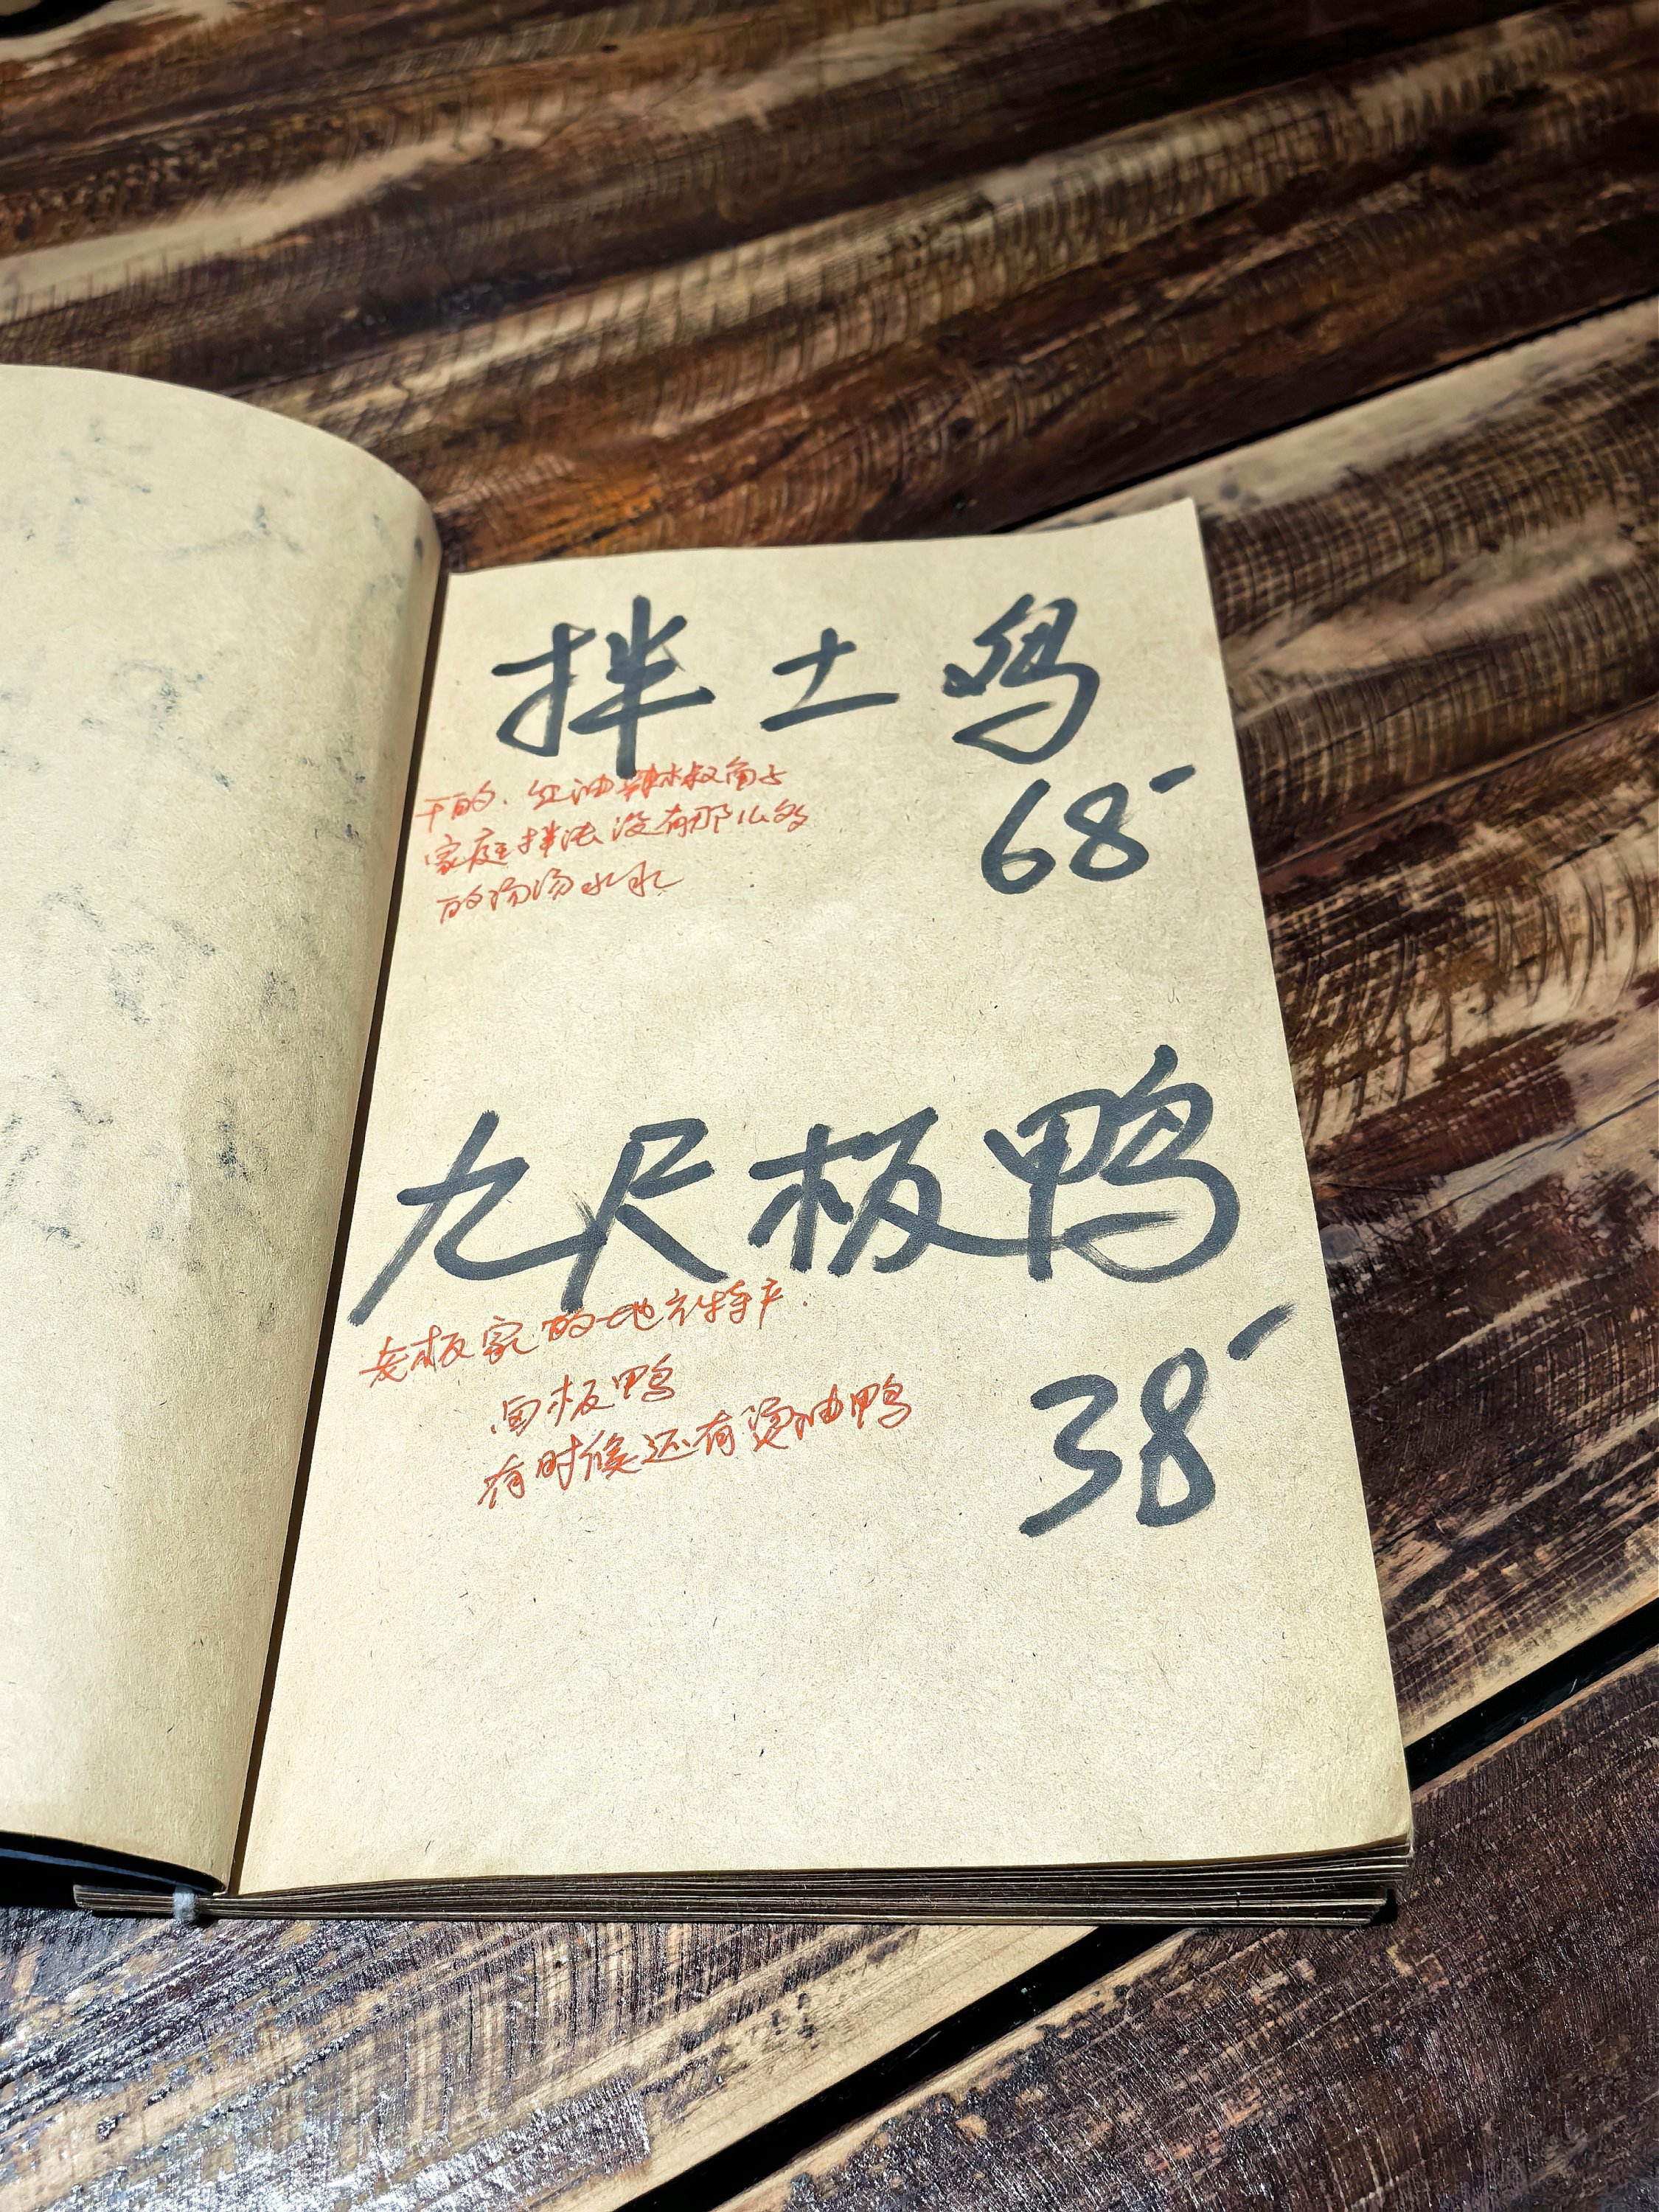 拌土鸡
68-
干的.红油辣椒面子
家庭拌法没有那么多
的汤汤水水
九尺板鸭
38-
老板家的地方特产.
卤板鸭
有时候还有烫油鸭